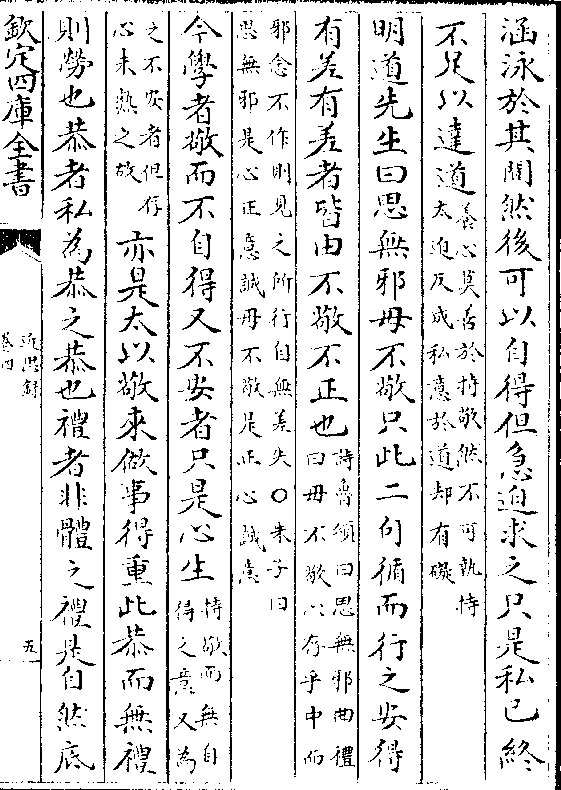 涵泳於其間然後可以自得但急迫求之只是私己終
不足以達道養心莫善於持敬然不可執持
太迫反成私意於道却有礙
明道先生曰思無邪毋不敬只此二句循而行之安得
有差有差者皆由不敬不正也詩魯頌曰思無邪曲禮
曰毋不敬以存乎中而
邪念不作則見之所行自無差失〇朱子曰
思無邪是心正意誠毋不敬是正心誠意
今學者敬而不自得又不安者只是心生持敬而無自
得之意又為
之不安者但存
心未熟之故亦是太以敬來做事得重此恭而無禮
則勞也恭者私為恭之恭也禮者非體之禮是自然底
欽定四庫全書
近思録
卷四
五